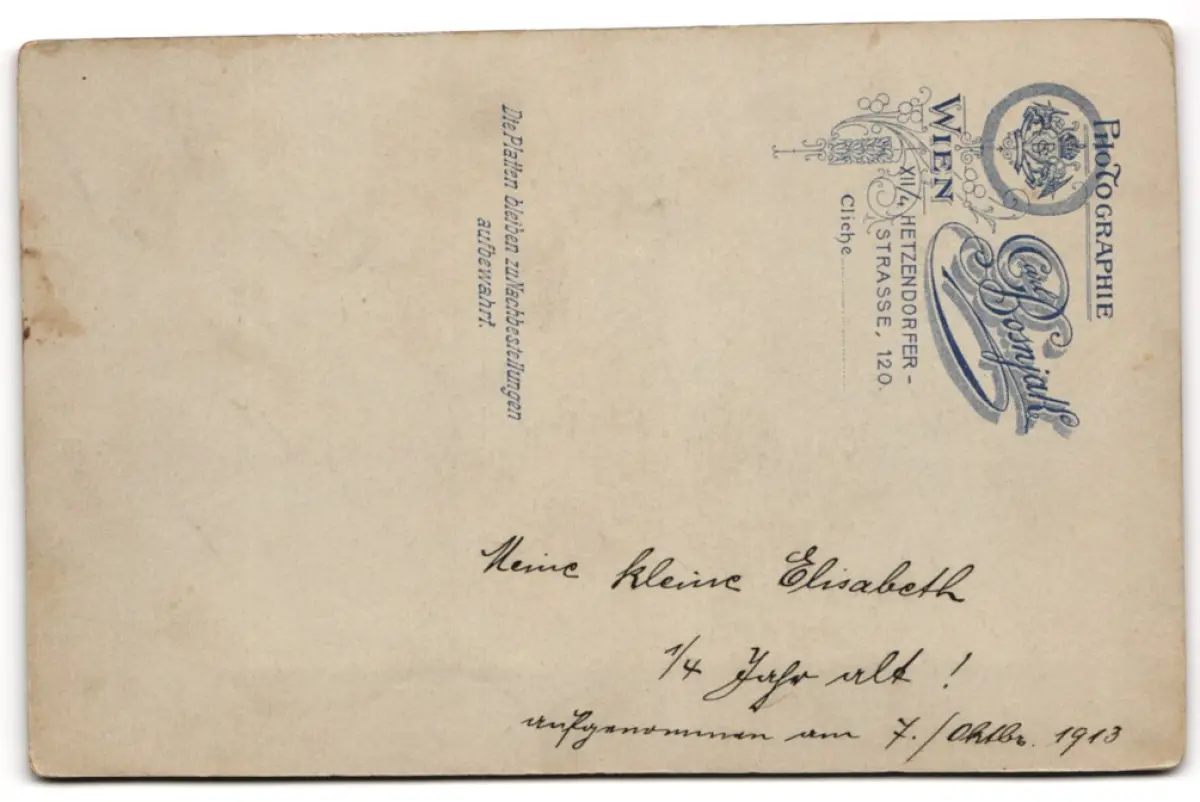 PHOTOGRAPHIE
Carl Bosnjak
WIEN
XII/4 HETZENDORFER-
STRASSE, 120.
Cliche
Die Platten bleiben zu Nachbestellungen
aufbewahrt.
Meine kleine Elisabeth
1/4 Jahr alt !
aufgenommen am 7./Oktbr. 1913